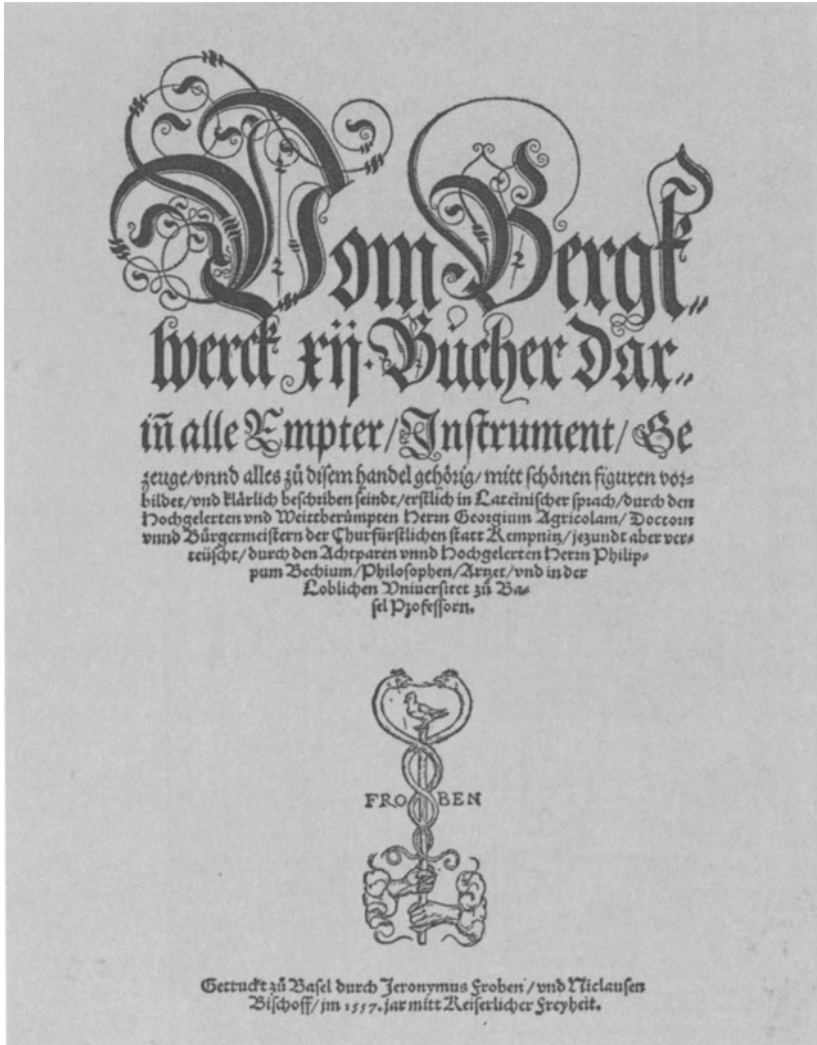 Vom Bergk⸗
werck xij. Bücher dar⸗
iñ alle Empter/Instrument/Ge
zeuge/vnnd alles zů disem handel gehörig/mitt schönen figuren vor⸗
bildet/vnd klärlich beschriben seindt/erstlich in Lateinischer sprach/durch den
Hochgelerten vnd Weittberümpten Herrn Georgium Agricolam/Doctorn
vnnd Bürgermeistern der Churfürstlichen statt Kempnitz/jezundt aber ver⸗
teüscht/durch den Achtparen vnnd Hochgelerten Herrn Philip⸗
pum Bechium/Philosophen/Artzet/vnd in der
Loblichen Vniuersitet zů Ba⸗
sel Professorn.
FROBEN
Getruckt zů Basel durch Jeronymus Froben/vnd Niclausen
Bischoff/jm 1557. jar mitt Keiserlicher Freyheit.